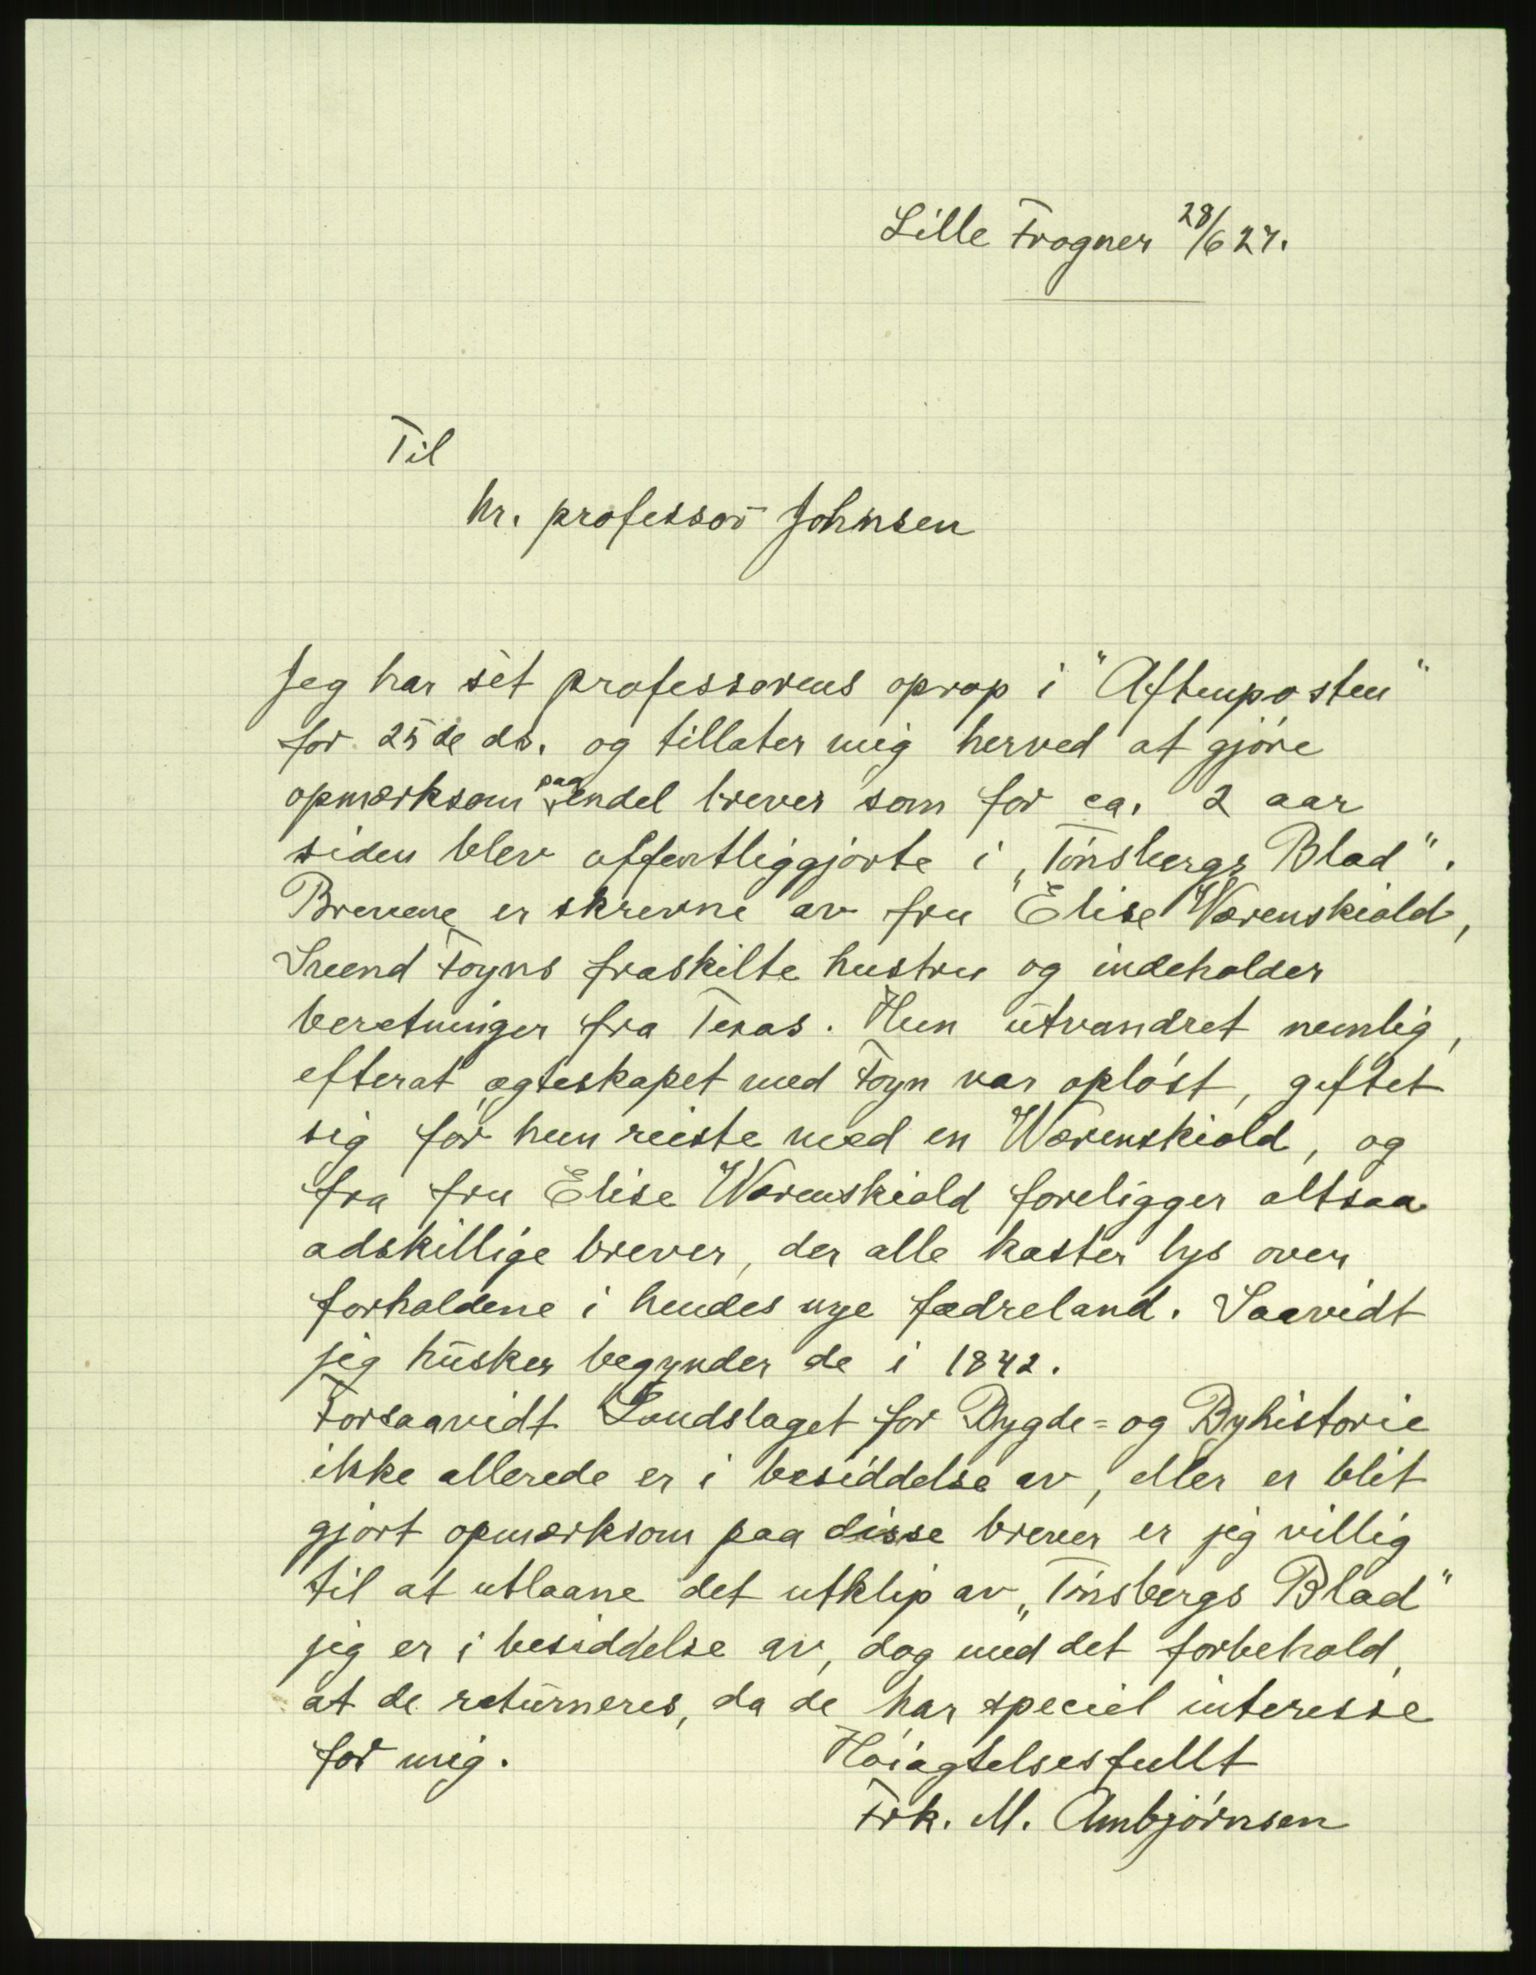 Lille Frogner 28/6 27.
Til
hr. professor Johnsen
Jeg har sèt professorens oprop i "Aftenposten"
for 25de ds. og tillater mig herved at gjóre
opmærksom paa endel brever som for ca. 2 aar
siden blev offentliggjorte i „Tónsbergs Blad".
Brevene er skrevne av fru Elise Wærenskiold,
Svend Foyns fraskilte hustru og indeholder
beretninger fra Texas. Hun utvandret nemlig,
efterat ægteskapet med Foyn var oplóst, giftet
sig fór hun reiste med en Wærenskiold, og
fra fru Elise Wærenskiold foreligger altsaa
adskillige brever, der alle kaster lys over
forholdene i hendes nye fædreland. Saavidt
jeg husker begynder de i 1842.
Forsaavidt Landslaget for Bygde= og Byhistorie
ikke allerede er i besiddelse av, eller er blit
gjort opmærksom paa disse brever er jeg villig
til at utlaane det utklip av „Tónsbergs Blad"
jeg er i besiddelse av, dog med det forbehold,
at de returneres, da de har speciel interesse
for mig.
Hóiagtelsesfullt
Frk. M. Ambjórnsen